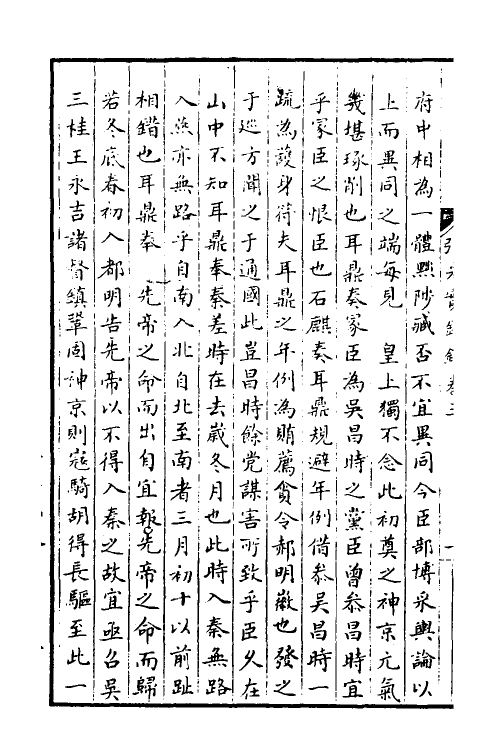 府中相為一體興陟臧否不宜異同今臣部博采輿論以
上而異同之端每見　皇上獨不念此初奠之神京元氣
幾堪琢削也耳鼎奏冡臣為吳昌時之黨臣曾叅昌時宜
乎冡臣之恨臣也石麒奏耳鼎規避年例借叅吳昌時一
疏為護身符夫耳鼎之年例為賄薦貪令郝明徽也發之
于廵方聞之于通國此豈昌時餘党謀害所致乎臣久在
山中不知耳鼎奉秦差時在去嵗冬月也此時入秦無路
入燕亦無路乎自南入北自北至南者三月初十以前趾
相錯也耳鼎奉　先帝之命而出自宜報先帝之命而歸
若冬底春初入都明告先帝以不得入秦之故宜亟召吳
三桂王永吉諸督鎮鞏固神京則寇騎胡得長驅至此一